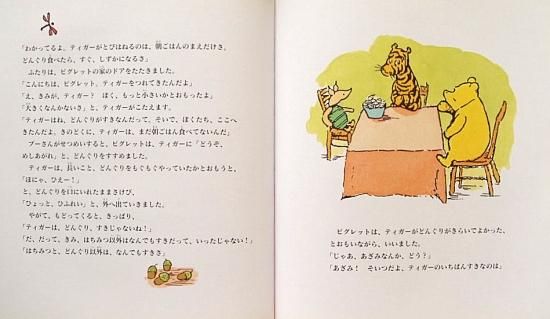 「わかってるよ。ティガーがとびはねるのは、朝ごはんのまえだけさ。
どんぐり食べたら、すぐ、しずかになるさ」
ふたりは、ピグレットの家のドアをたたきました。
「こんにちは、ピグレット。ティガーをつれてきたんだよ」
「え、きみが、ティガー？　ぼく、もっと小さいかとおもったよ」
「大きくなんかないさ」と、ティガーがこたえます。
「ティガーはね、どんぐりがすきなんだって。そいで、ぼくたち、ここへ
きたんだよ。きのどくに、ティガーは、まだ朝ごはん食べてないんだ」
プーさんがせつめいすると、ピグレットは、ティガーに「どうぞ、
めしあがれ」と、どんぐりをすすめました。
ティガーは、長いこと、どんぐりをもぐもぐやっていたかとおもうと、
「ほにゃ、ひえー！」
と、どんぐりを口にいれたままさけび、
「ひょっと、ひふれい」と、外へ出ていきました。
やがて、もどってくると、きっぱり、
「ティガーは、どんぐり、すきじゃないね！」
「だ、だって、きみ、はちみつ以外はなんでもすきだって、いったじゃない！」
「はちみつと、どんぐり以外は、なんでもすきさ」
ピグレットは、ティガーがどんぐりがきらいでよかった、
とおもいながら、いいました。
「じゃあ、あざみなんか、どう？」
「あざみ！　そいつだよ、ティガーのいちばんすきなのは」